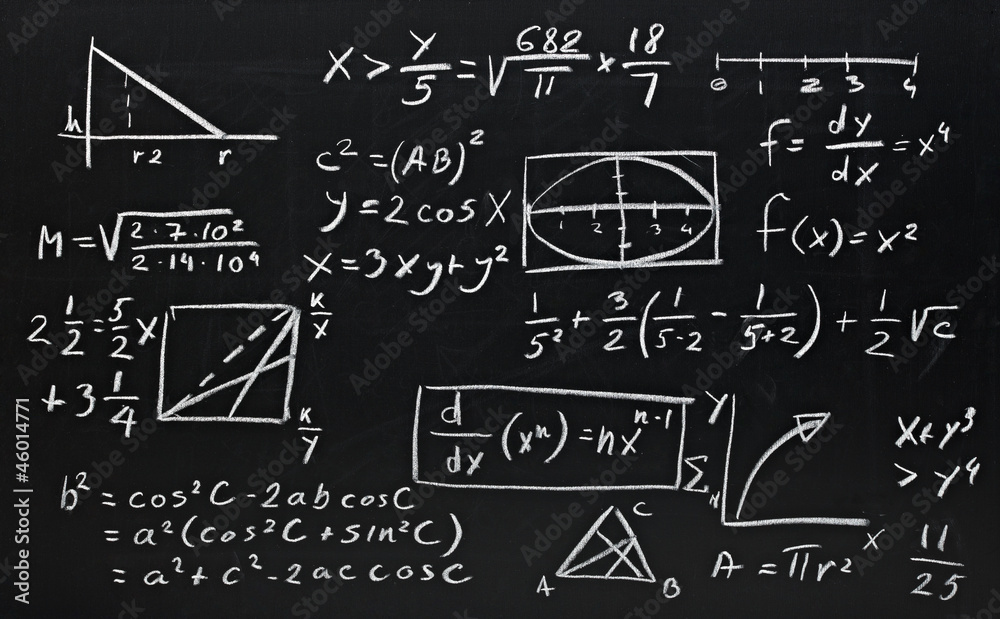 h
r2 r
X > y/5 = √(682/11) × 18/7
0 1 2 3 4
c² = (AB)²
y = 2 cos X
x = 3xy + y²
1 2 3 4
f = dy/dx = x⁴
f(x) = x²
M = √(2·7·10²/2·14·10⁴)
2 1/2 = 5/2 X
+ 3 1/4
K/X
K/y
1/5² + 3/2 (1/5-2 - 1/5+2) + 1/2 √c
d/dx (xⁿ) = nxⁿ⁻¹
y
Σ N
x
y³
> y⁴
b² = cos²C - 2ab cosC
= a²(cos²C + sin²C)
= a² + c² - 2ac cosc
A B C
A = πr²
11/25
Adobe Stock | #46014771